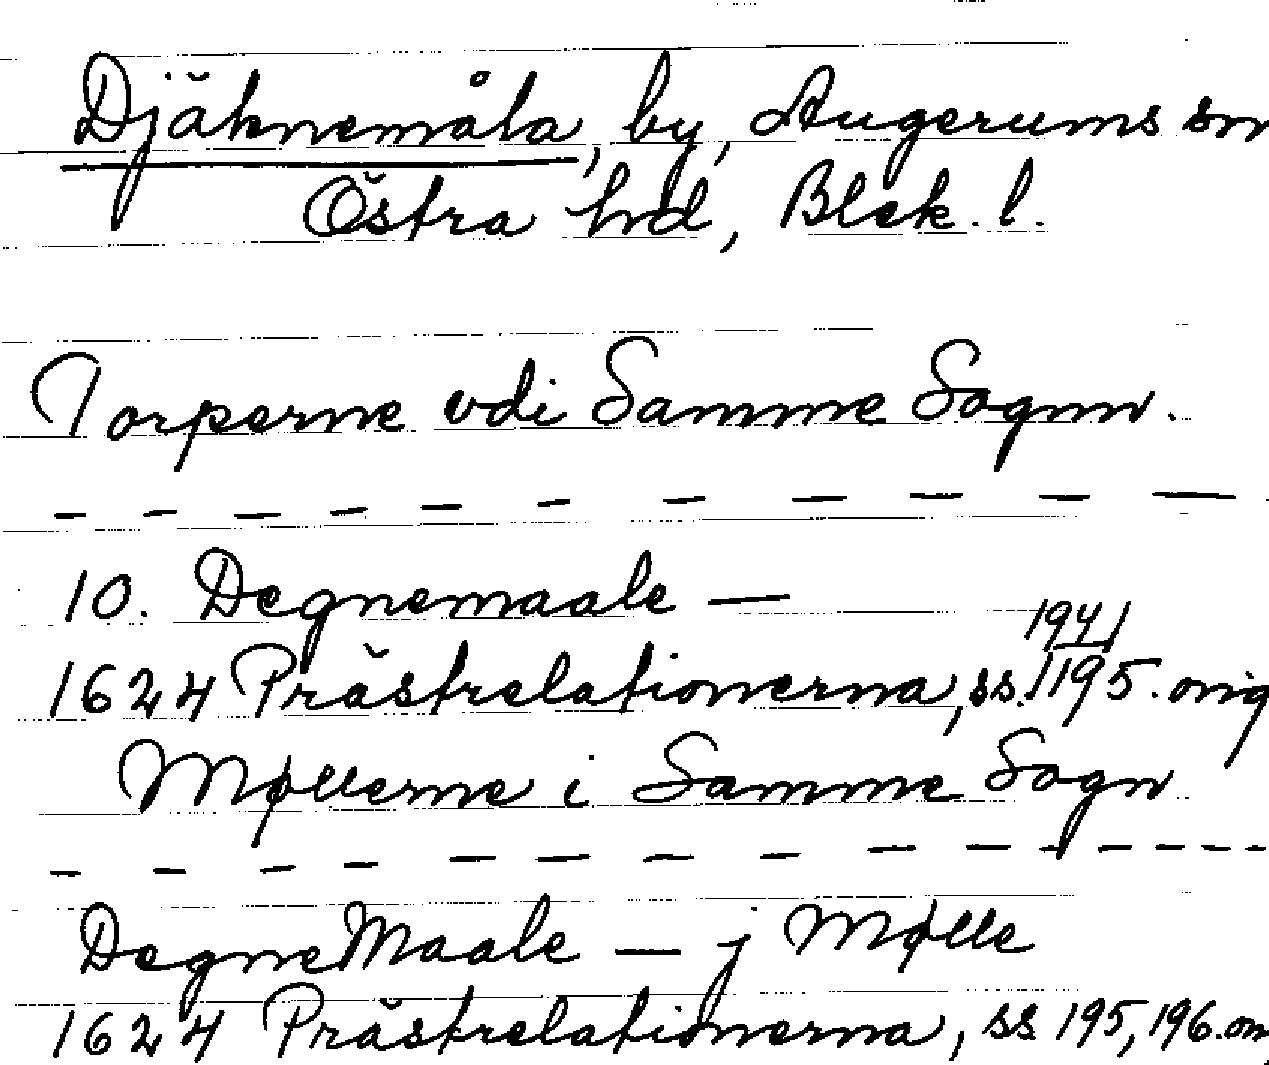 Djäknemåla, by, Augerums sn
Östra hd, Blek. l.
Torperne vdi Samme Sognn.
10. Degnemaale —
1624 Prästrelationerna, ss. 194, 195. orig
Møllerne i Samme Sogn
DegneMaale — j Mølle
1624 Prästrelationerna, ss 195, 196. orig